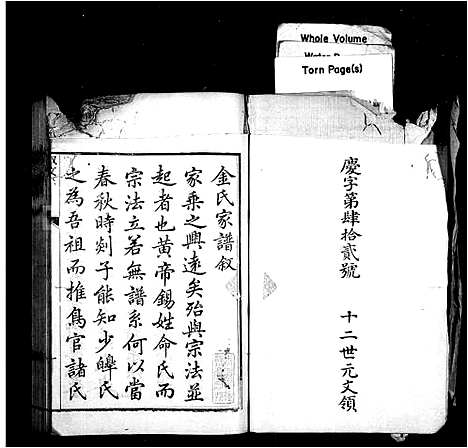 Whole Volume
Torn Page(s)
慶字第肆拾貳號
十二世元文領
金氏家譜叙
家乘之興遠矣殆與宗法並
起者也黄帝錫姓命氏而
宗法立若無譜系何以當
春秋時剡子能知少皥氏
之為吾祖而推鳥官諸氏